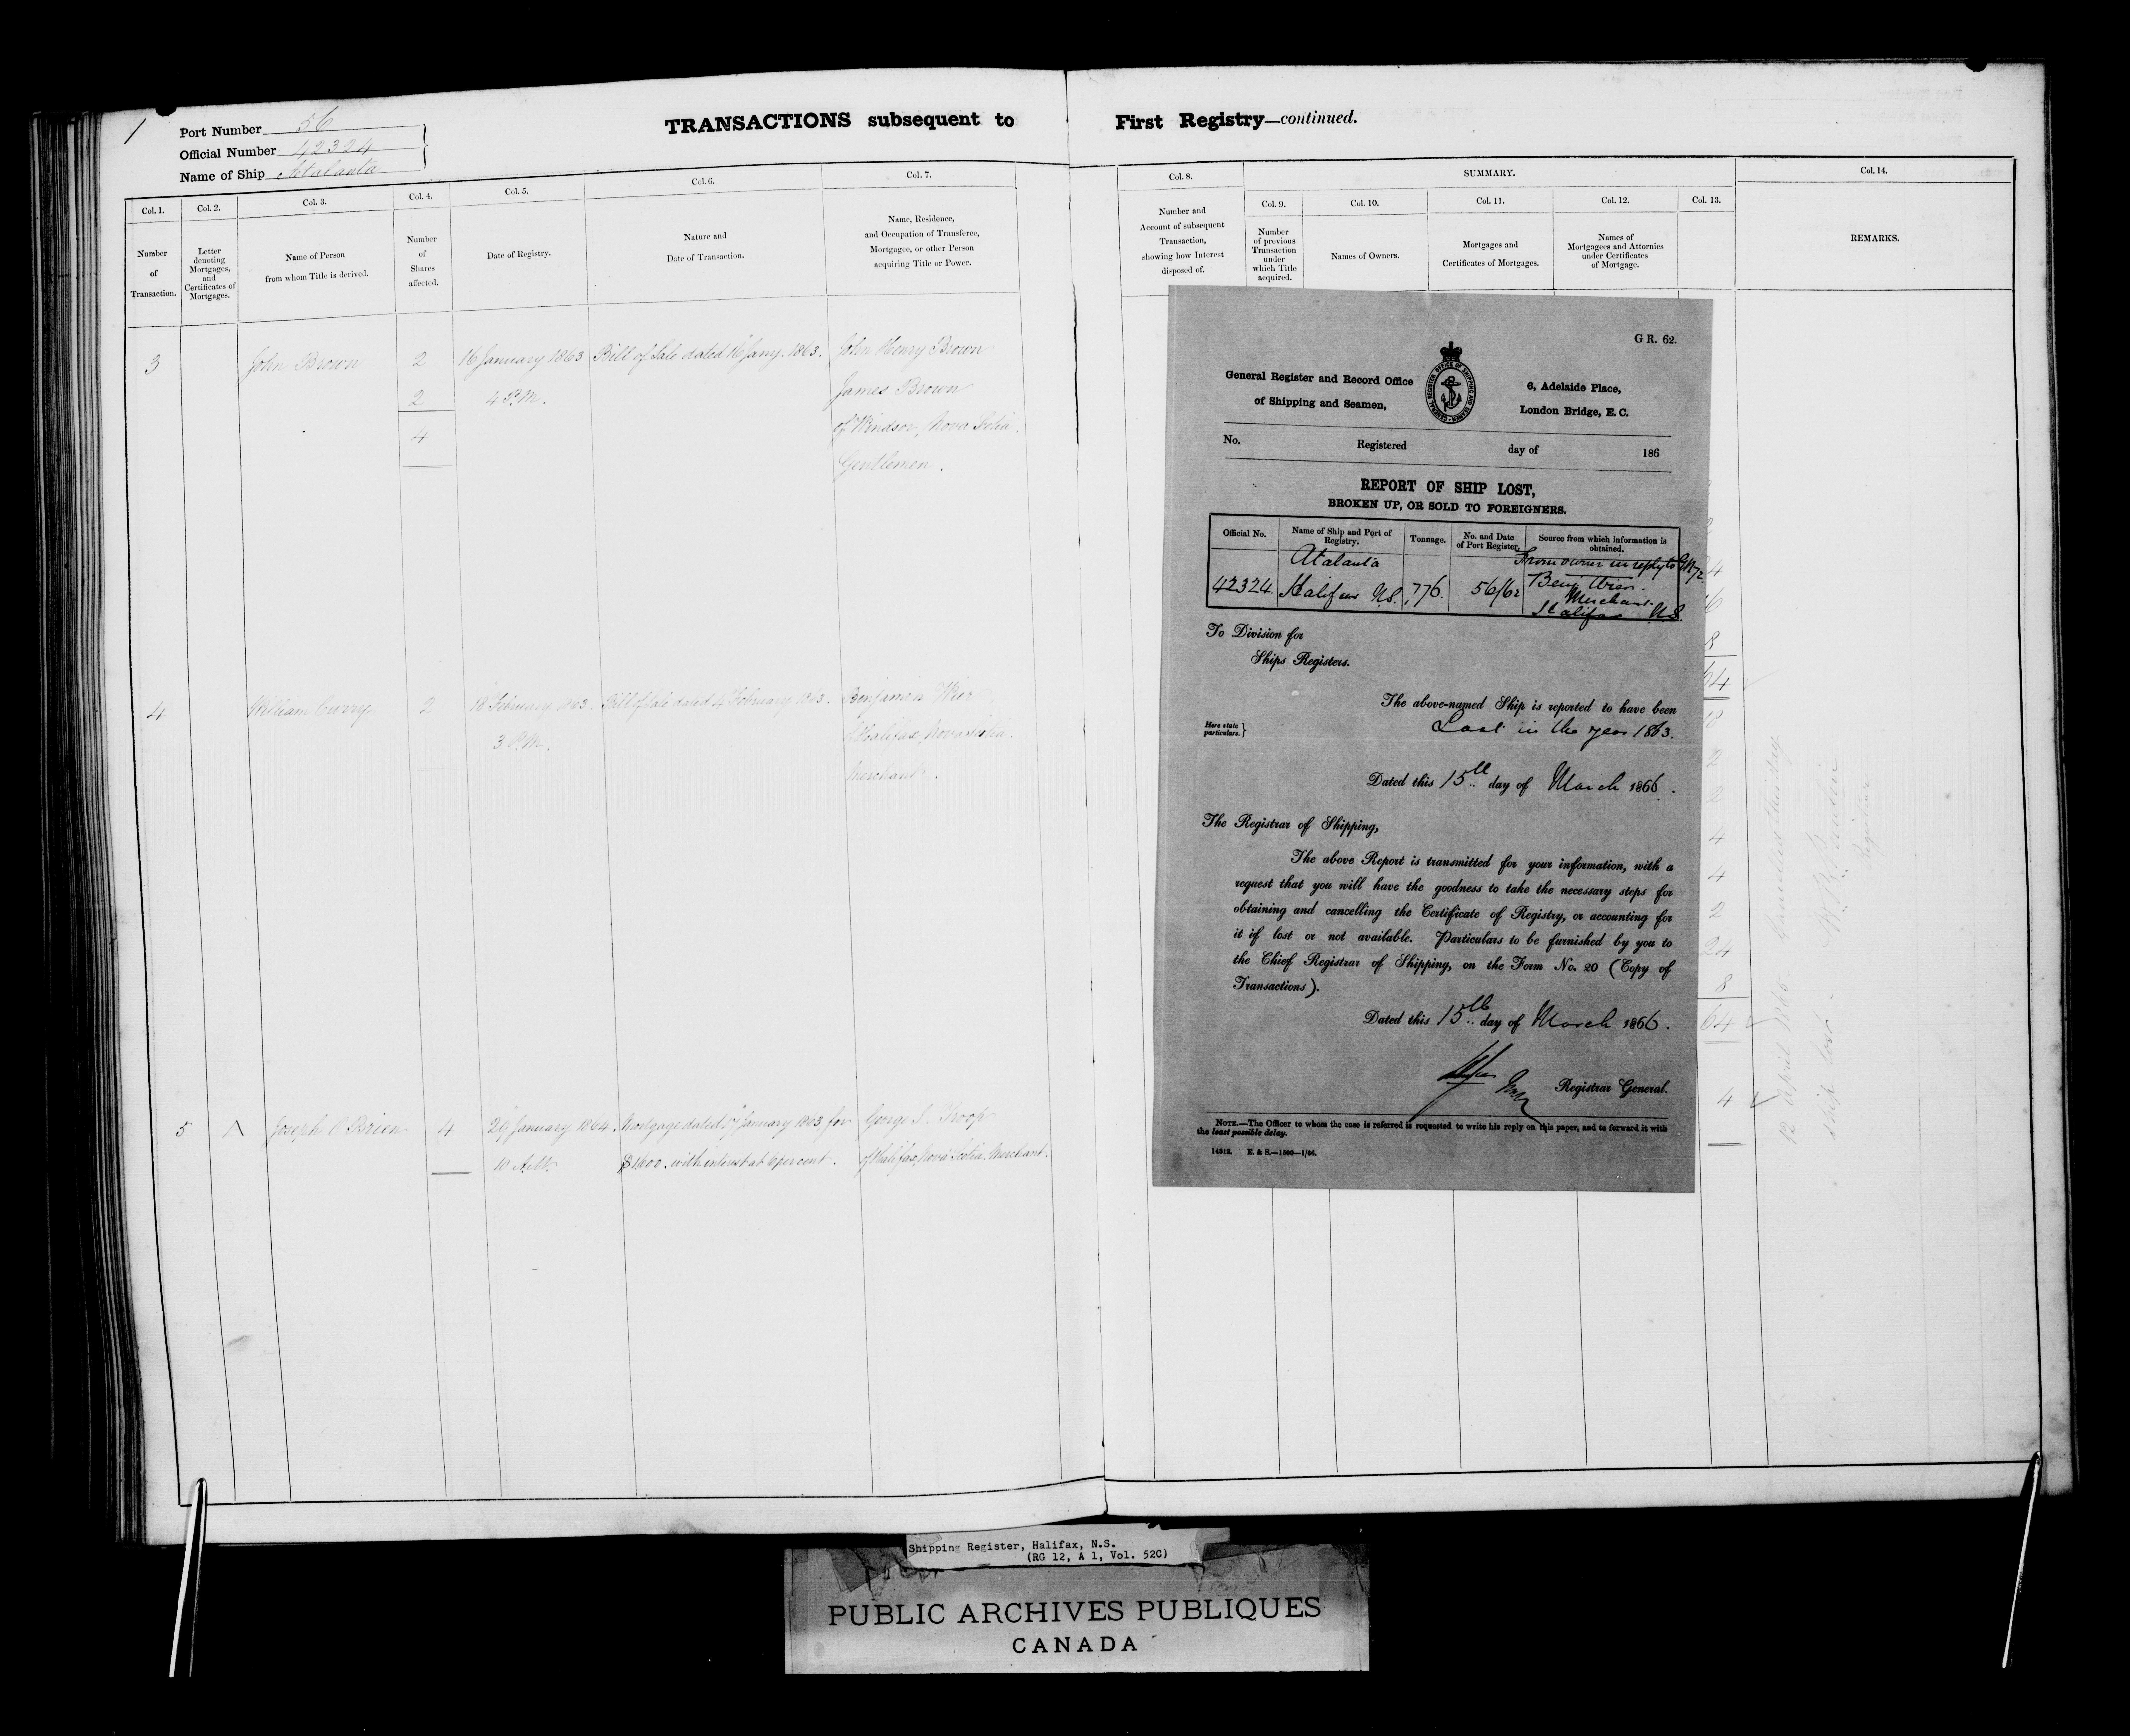 1
Port Number 56
Official Number 42324
Name of Ship Atalanta
TRANSACTIONS subsequent to First Registry—continued.
Col. 1. Number of Transaction.
Col. 2. Letter denoting Mortgages, and Certificates of Mortgages.
Col. 3. Name of Person from whom Title is derived.
Col. 4. Number of Shares affected.
Col. 5. Date of Registry.
Col. 6. Nature and Date of Transaction.
Col. 7. Name, Residence, and Occupation of Transferee, Mortgagee, or other Person acquiring Title or Power.
Col. 8. Number and Account of subsequent Transaction, showing how Interest disposed of.
SUMMARY.
Col. 9. Number of previous Transaction under which Title acquired.
Col. 10. Names of Owners.
Col. 11. Mortgages and Certificates of Mortgages.
Col. 12. Names of Mortgagees and Attornies under Certificates of Mortgage.
Col. 13.
Col. 14. REMARKS.
3 John Brown 2 16 January 1863 Bill of Sale dated 16 Jany. 1863. John Henry Brown
2 4 P.M. James Brown
4 of Windsor, Nova Scotia.
Gentlemen.
4 William Curry 2 18 February 1863. Bill of Sale dated 4 February 1863. Benjamin Wier
3 P.M. of Halifax, Nova Scotia.
Merchant.
5 A Joseph O'Brien 4 29 January 1864. Mortgage dated 17 January 1863 for George J. Troop
10 A.M. $1600. with interest at 6 per cent. of Halifax, Nova Scotia. Merchant.
GR. 62.
General Register and Record Office
of Shipping and Seamen,
GENERAL REGISTER OFFICE OF SHIPPING AND SEAMEN
6, Adelaide Place,
London Bridge, E.C.
No. Registered day of 186
REPORT OF SHIP LOST,
BROKEN UP, OR SOLD TO FOREIGNERS.
Official No. Name of Ship and Port of Registry. Tonnage. No. and Date of Port Register. Source from which information is obtained.
Atalanta From owner in reply to GR 72
42324. Halifax N.S. 776. 56/62 Benj Wier.
Merchant.
Halifax N.S.
To Division for
Ships Registers.
The above-named Ship is reported to have been
Here state particulars. } Lost in the year 1863.
Dated this 15th day of March 1866.
The Registrar of Shipping,
The above Report is transmitted for your information, with a
request that you will have the goodness to take the necessary steps for
obtaining and cancelling the Certificate of Registry, or accounting for
it if lost or not available. Particulars to be furnished by you to
the Chief Registrar of Shipping, on the Form No. 20 (Copy of
Transactions).
Dated this 15th day of March 1866.
Registrar General.
NOTE.—The Officer to whom the case is referred is requested to write his reply on this paper, and to forward it with
the least possible delay.
14312. E. & S.—1500—1/66.
8
64
2
2
4
4
2
24
8
64
4
12 April 1865
Ship lost.
Registrar
Shipping Register, Halifax, N.S.
(RG 12, A 1, Vol. 52C)
PUBLIC ARCHIVES PUBLIQUES
CANADA